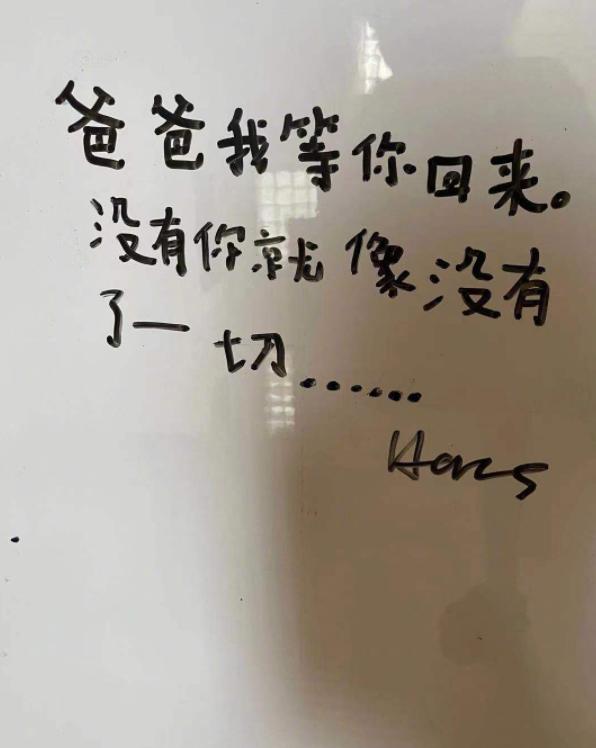 爸爸我等你回来。
没有你就像没有
了一切......
Hans